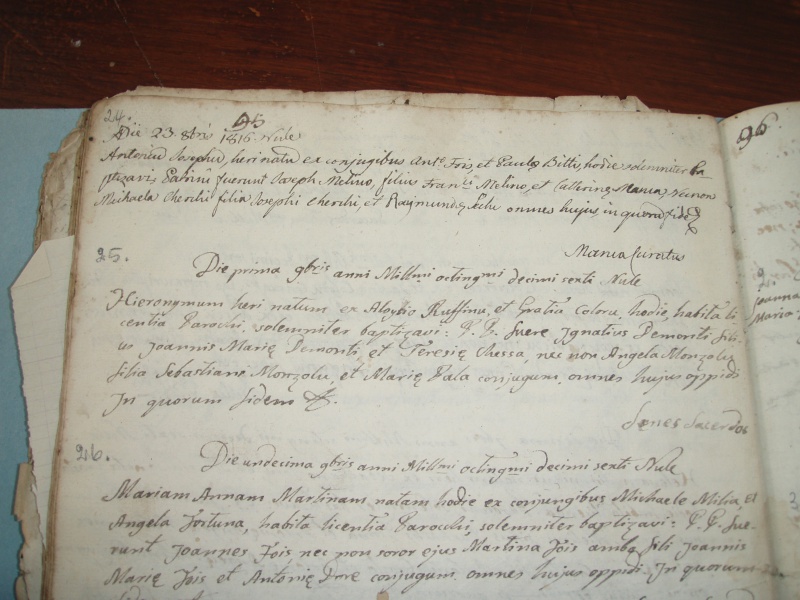 95
24.
Die 23 8bris 1816 Nule
Antoniu Josephu, heri natu ex conjugibus Ant.o Fois, et Paulę Bitti, hodie solemniter ba
ptizavi, Patrini fuerunt Joseph Melino, filius Fran.ci Melino, et Catterinę Manca, necnon
Michaela Cherchi filia Josephi Cherchi, et Raymundę omnes hujus, in quoru fide
Manca Curatus
25.
Die prima 9bris anni Millmi octingmi decimi sexti Nule
Hieronymum heri natum ex Aloysio Ruffinu, et Gratia Coloru, hodie, habita li
centia Parochi, solemniter baptizavi: P. P. fuere Ignatius Demonti fili-
us Joannis Marię Demonti, et Teresię Chessa, nec non Angela Monzolu
filia Sebastiani Monzolu, et Marię Pala conjugum, omnes hujus oppidi
In quorum fidem &.
Senes Sacerdos
26.
Die undecima 9bris anni Millmi octingmi decimi sexti Nule
Mariam Annam Martinam, natam hodie ex conjungibus Michaele Milia, et
Angela Fortuna, habita licentia Parochi, solemniter baptizavi: P. P. fue-
runt Joannes Fois nec non soror ejus Martina Fois ambo fili Joannis
Marię Fois et Antonię Dore conjugum omnes hujus oppidi. In quorum
96
Joanna
Maria